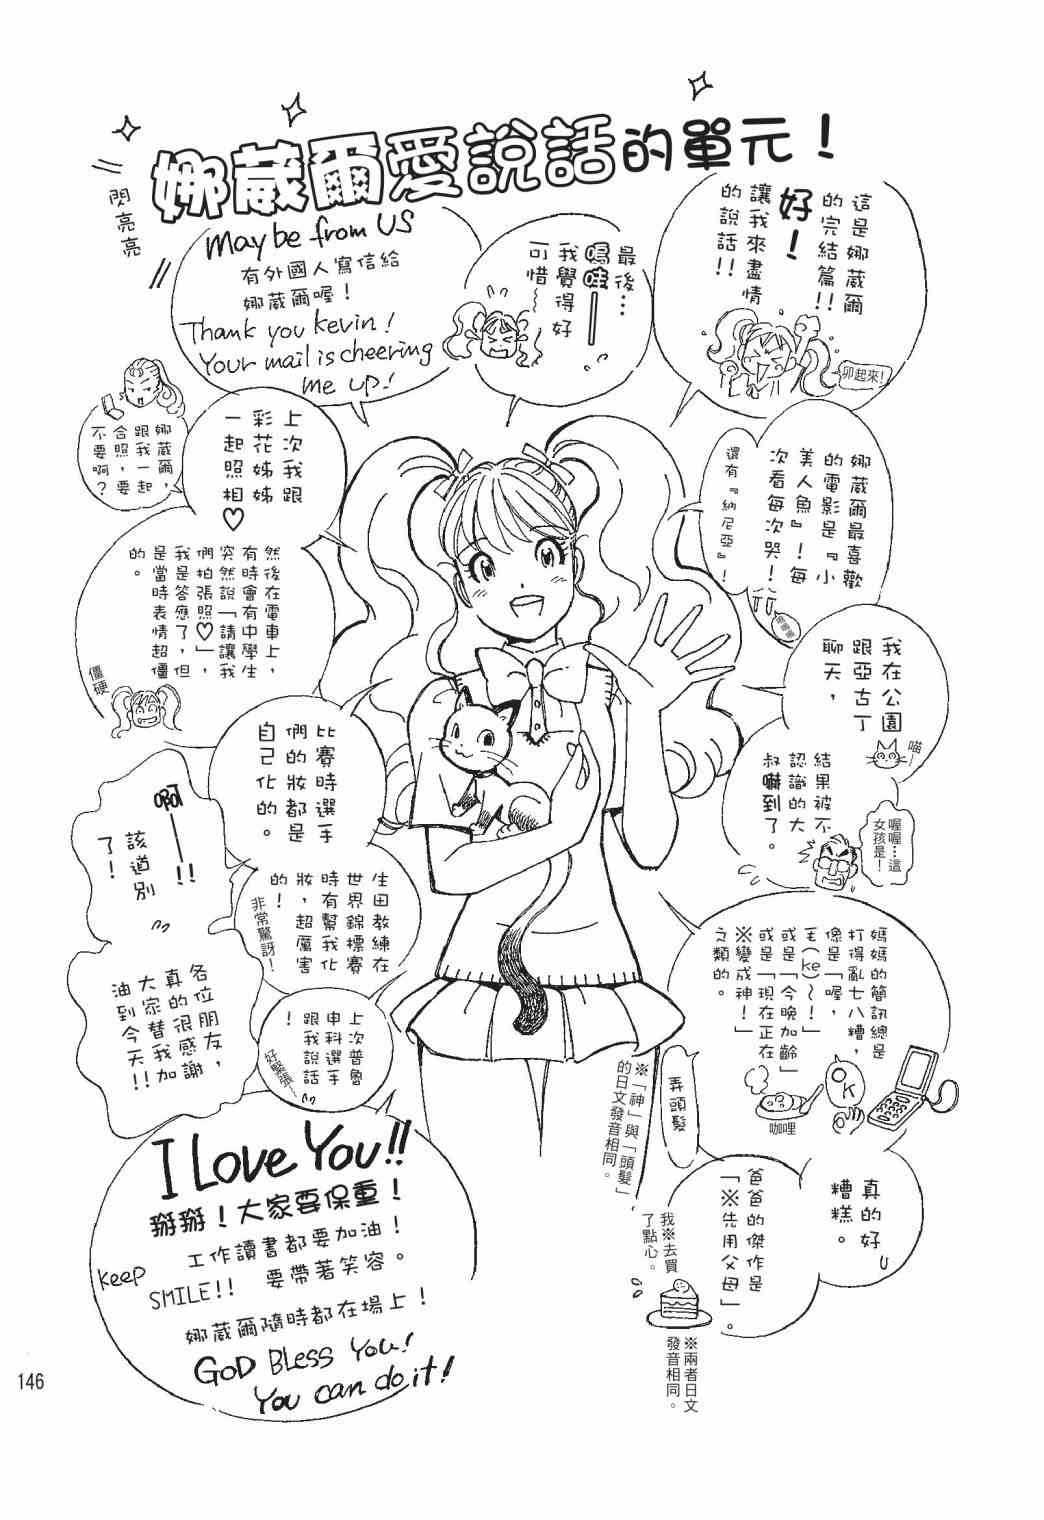 娜葳爾愛說話的單元！
閃亮亮
這是娜葳爾
的完結篇!!
好！
讓我來盡情
的說話!!
卯起來!
最後…
嗚哇——
我覺得好
可惜
Maybe from US
有外國人寫信給
娜葳爾喔！
Thank you Kevin!
Your mail is cheering
me up!
娜葳爾最喜歡
的電影是『小
美人魚』！每
次看每次哭！
還有『納尼亞』！
上次我跟
彩花姊姊
一起照相♡
娜葳爾，
跟我一起
合照，要
不要啊？
然後在電車上，
有時會有中學生
突然說「請讓我
們拍張照♡」，
我是答應了，但
是當時表情超僵
的。
僵硬
我在公園
跟亞古丁
聊天，
喵～
結果被不
認識的大
叔嚇到了。
喔喔…這
女孩是！
比賽時選手
們的妝都是
自己化的。
生田教練在
世界錦標賽
時有幫我化
妝，超厲害
的！
非常驚訝！
上次普魯
申科選手
跟我說話
！
好緊張～
媽媽的簡訊總是
打得亂七八糟，
像是「喔，
毛(ke)～！」
或是「今晚加齡」
或是「現在正在
※變成神！」
之類的。
OK
咖哩
弄頭髮
※「神」與「頭髮」
的日文發音相同。
真的好
糟糕。
爸爸的傑作是
「※先用父母」。
我※去買
了點心。
※兩者日文
發音相同。
啊——!!
該道別
了！
各位朋友，
真的很感謝
大家替我加
油到今天!!
I Love You!!
掰掰！大家要保重！
工作讀書都要加油！
keep
SMILE!! 要帶著笑容。
娜葳爾隨時都在場上！
GOD BLess You!
You can do it!
146